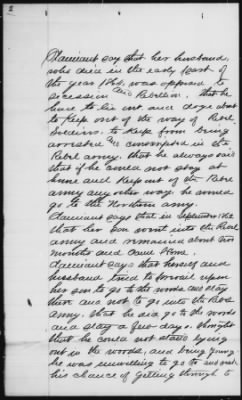 2
Claimant say that her husband,
who died in the early part of
the year 1864, was opposed to
secession and Rebellion. that he
had to lie out and dodge about
to keep out of the way of Rebel
Soldiers. to keep from being
arrested and conscripted in the
Rebel army. that he always said
that if he could not stay at
home and keep out of the Rebel
army any other way. he would
go to the Northern army.
Claimant says that in September 1862
that her son went into the Rebel
army and remained about two
months and came home.
Claimant says that herself and
husband tried to prevail upon
her son to go to the woods and stay
there and not to go into the Rebel
army. that he did go to the woods
and stay a few days. thought
that he could not stand lying
out in the woods, and being young
he was unwilling to go to and
his chance of getting through to